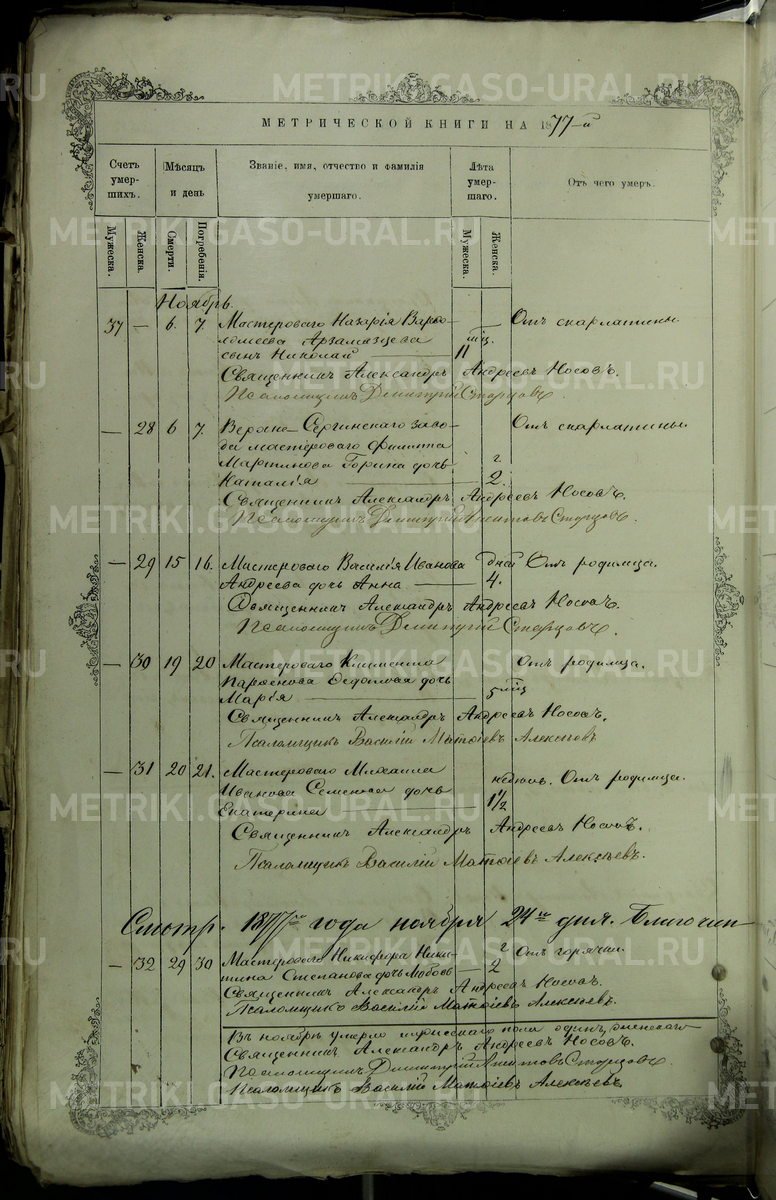 МЕТРИЧЕСКОЙ КНИГИ НА 1877-й
Счетъ умер-шихъ.
Мѣсяцъ и день
Званіе, имя, отчество и фамилія умершаго.
Лѣта умер-шаго.
Отъ чего умеръ.
Мужеска.
Женска.
Смерти.
Погребенія.
Мужеска.
Женска.
Ноябрь.
37 — 6. 7. Мастероваго Назарія Варѳо- — Отъ скарлатины
ломеева Арзамазцева мѣц.
сынъ Николай 11
Священникъ Александръ Андреевъ Носовъ.
Псаломщикъ Димитрій Старцовъ.
— 28 6 7. Верхне-Сергинскаго заво- Отъ скарлатины.
да мастероваго Филиппа
Мартинова Горина дочь г.
Наталія 2.
Священникъ Александръ Андреевъ Носовъ.
Псаломщикъ Димитрій Старцовъ.
— 29 15 16. Мастероваго Василія Иванова дней Отъ родимца.
Андреева дочь Анна 4.
Священникъ Александръ Андреевъ Носовъ.
Псаломщикъ Димитрій Старцовъ.
— 30 19 20 Мастероваго Климента Отъ родимца.
дочь
Марія мѣц
Священникъ Александръ Андреевъ Носовъ.
Псаломщикъ Василій Матѳіевъ Алексѣевъ
— 31 20 21. Мастероваго Михаила недѣль. Отъ родимца.
Иванова дочь
Екатерина 1 1/2
Священникъ Александръ Андреевъ Носовъ.
Псаломщикъ Василій Матѳіевъ Алексѣевъ.
Смотр. 1877го года ноября 24го дня. Благочин
— 32 29 30 Мастероваго Никифора Ники- г Отъ горячки.
тина Степанова дочь Любовь — 2
Священникъ Александръ Андреевъ Носовъ.
Псаломщикъ Василій Матѳіевъ Алексѣевъ.
Въ ноябрѣ умерло мужескаго пола одинъ, женскаго
Священникъ Александръ Андреевъ Носовъ.
Псаломщикъ Димитрій Старцовъ.
Псаломщикъ Василій Матѳіевъ Алексѣевъ.
METRIKI.GASO-URAL.RU